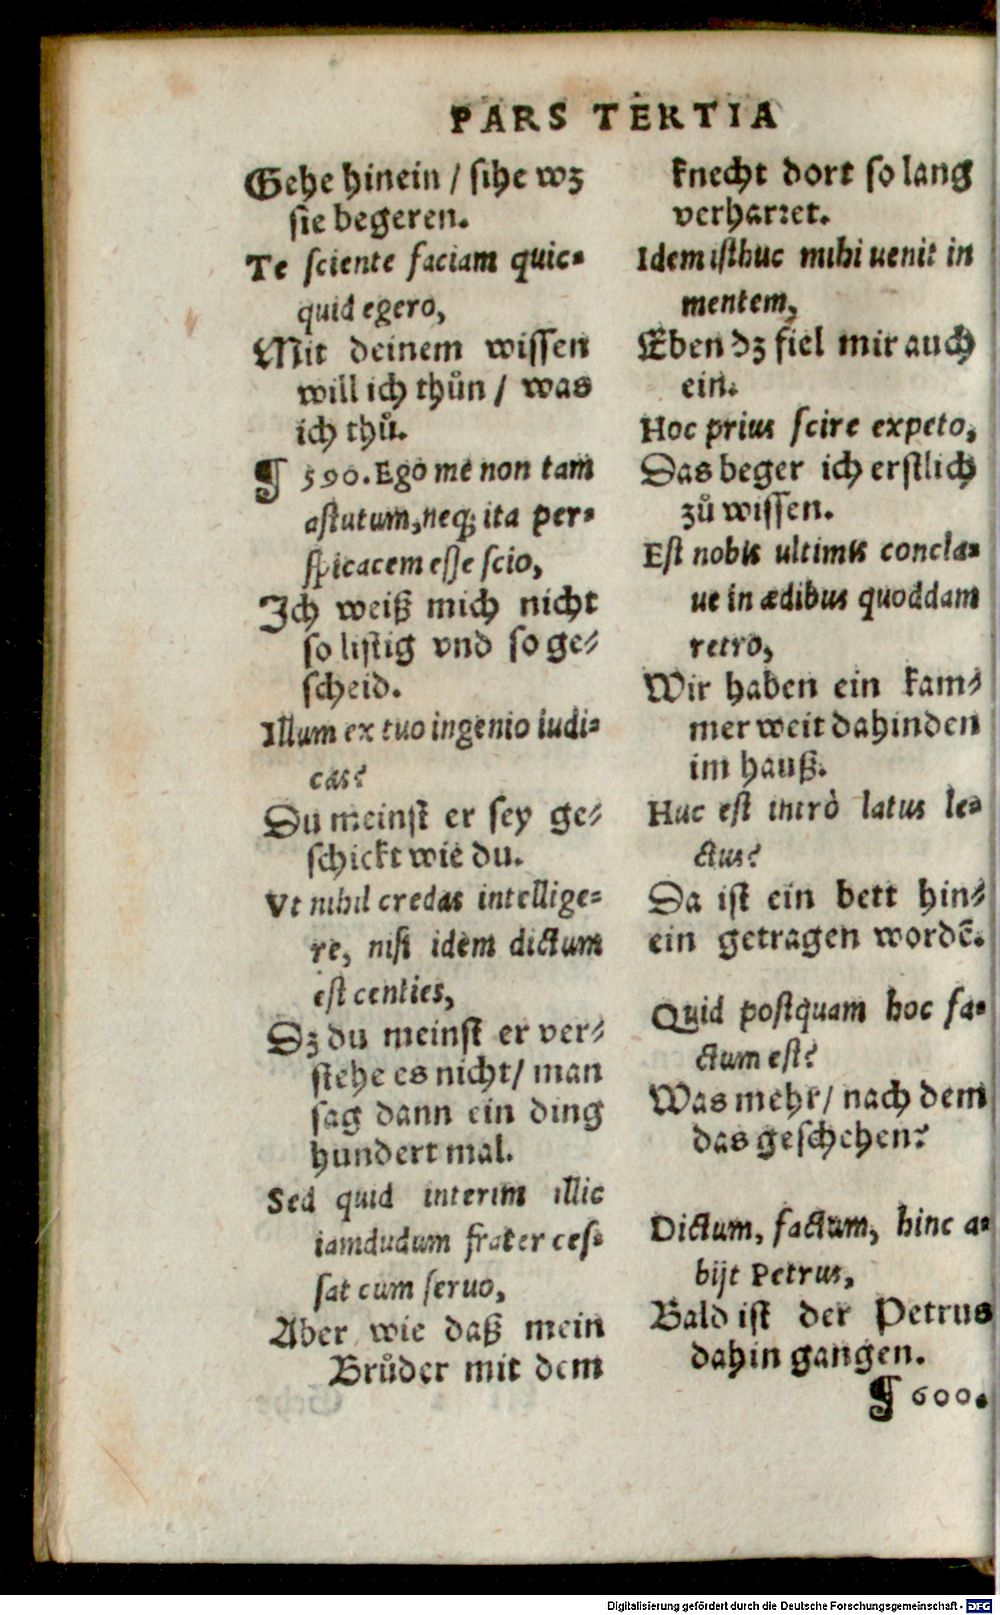 PARS TERTIA
Gehe hinein / sihe wz
sie begeren.
Te sciente faciam quic-
quid egero,
Mit deinem wissen
will ich thůn / was
ich thů.
¶ 590. Ego me non tam
astutum, neq; ita per-
spicacem esse scio,
Ich weiß mich nicht
so listig vnd so ge-
scheid.
Illum ex tuo ingenio iudi-
cas?
Du meinst er sey ge-
schickt wie du.
Vt nihil credas intellige-
re, nisi idem dictum
est centies,
Dz du meinst er ver-
stehe es nicht / man
sag dann ein ding
hundert mal.
Sed quid interim illic
iamdudum frater ces-
sat cum seruo,
Aber wie daß mein
Brůder mit dem
knecht dort so lang
verharret.
Idem isthuc mihi uenit in
mentem,
Eben dz fiel mir auch
ein.
Hoc prius scire expeto,
Das beger ich erstlich
zů wissen.
Est nobis ultimis concla-
ue in ædibus quoddam
retro,
Wir haben ein kam-
mer weit dahinden
im hauß.
Huc est intrò latus le-
ctus?
Da ist ein bett hin-
ein getragen wordē.
Quid postquam hoc fa-
ctum est?
Was mehr / nach dem
das geschehen?
Dictum, factum, hinc a-
bijt Petrus,
Bald ist der Petrus
dahin gangen.
¶ 600.
Digitalisierung gefördert durch die Deutsche Forschungsgemeinschaft - DFG